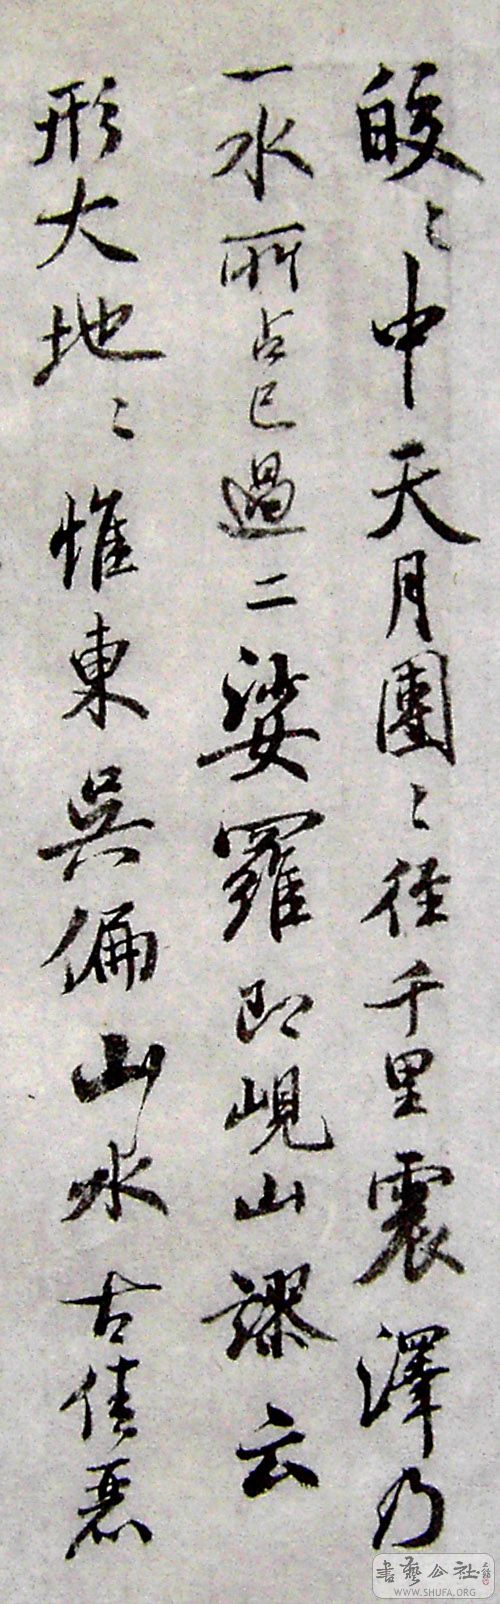 皎〻中天月團〻徑千里震澤乃
一水所占已過二娑羅即峴山謬云
形大地〻惟東吳偏山水古佳麗
書藝公社
WWW.SHUFA.ORG